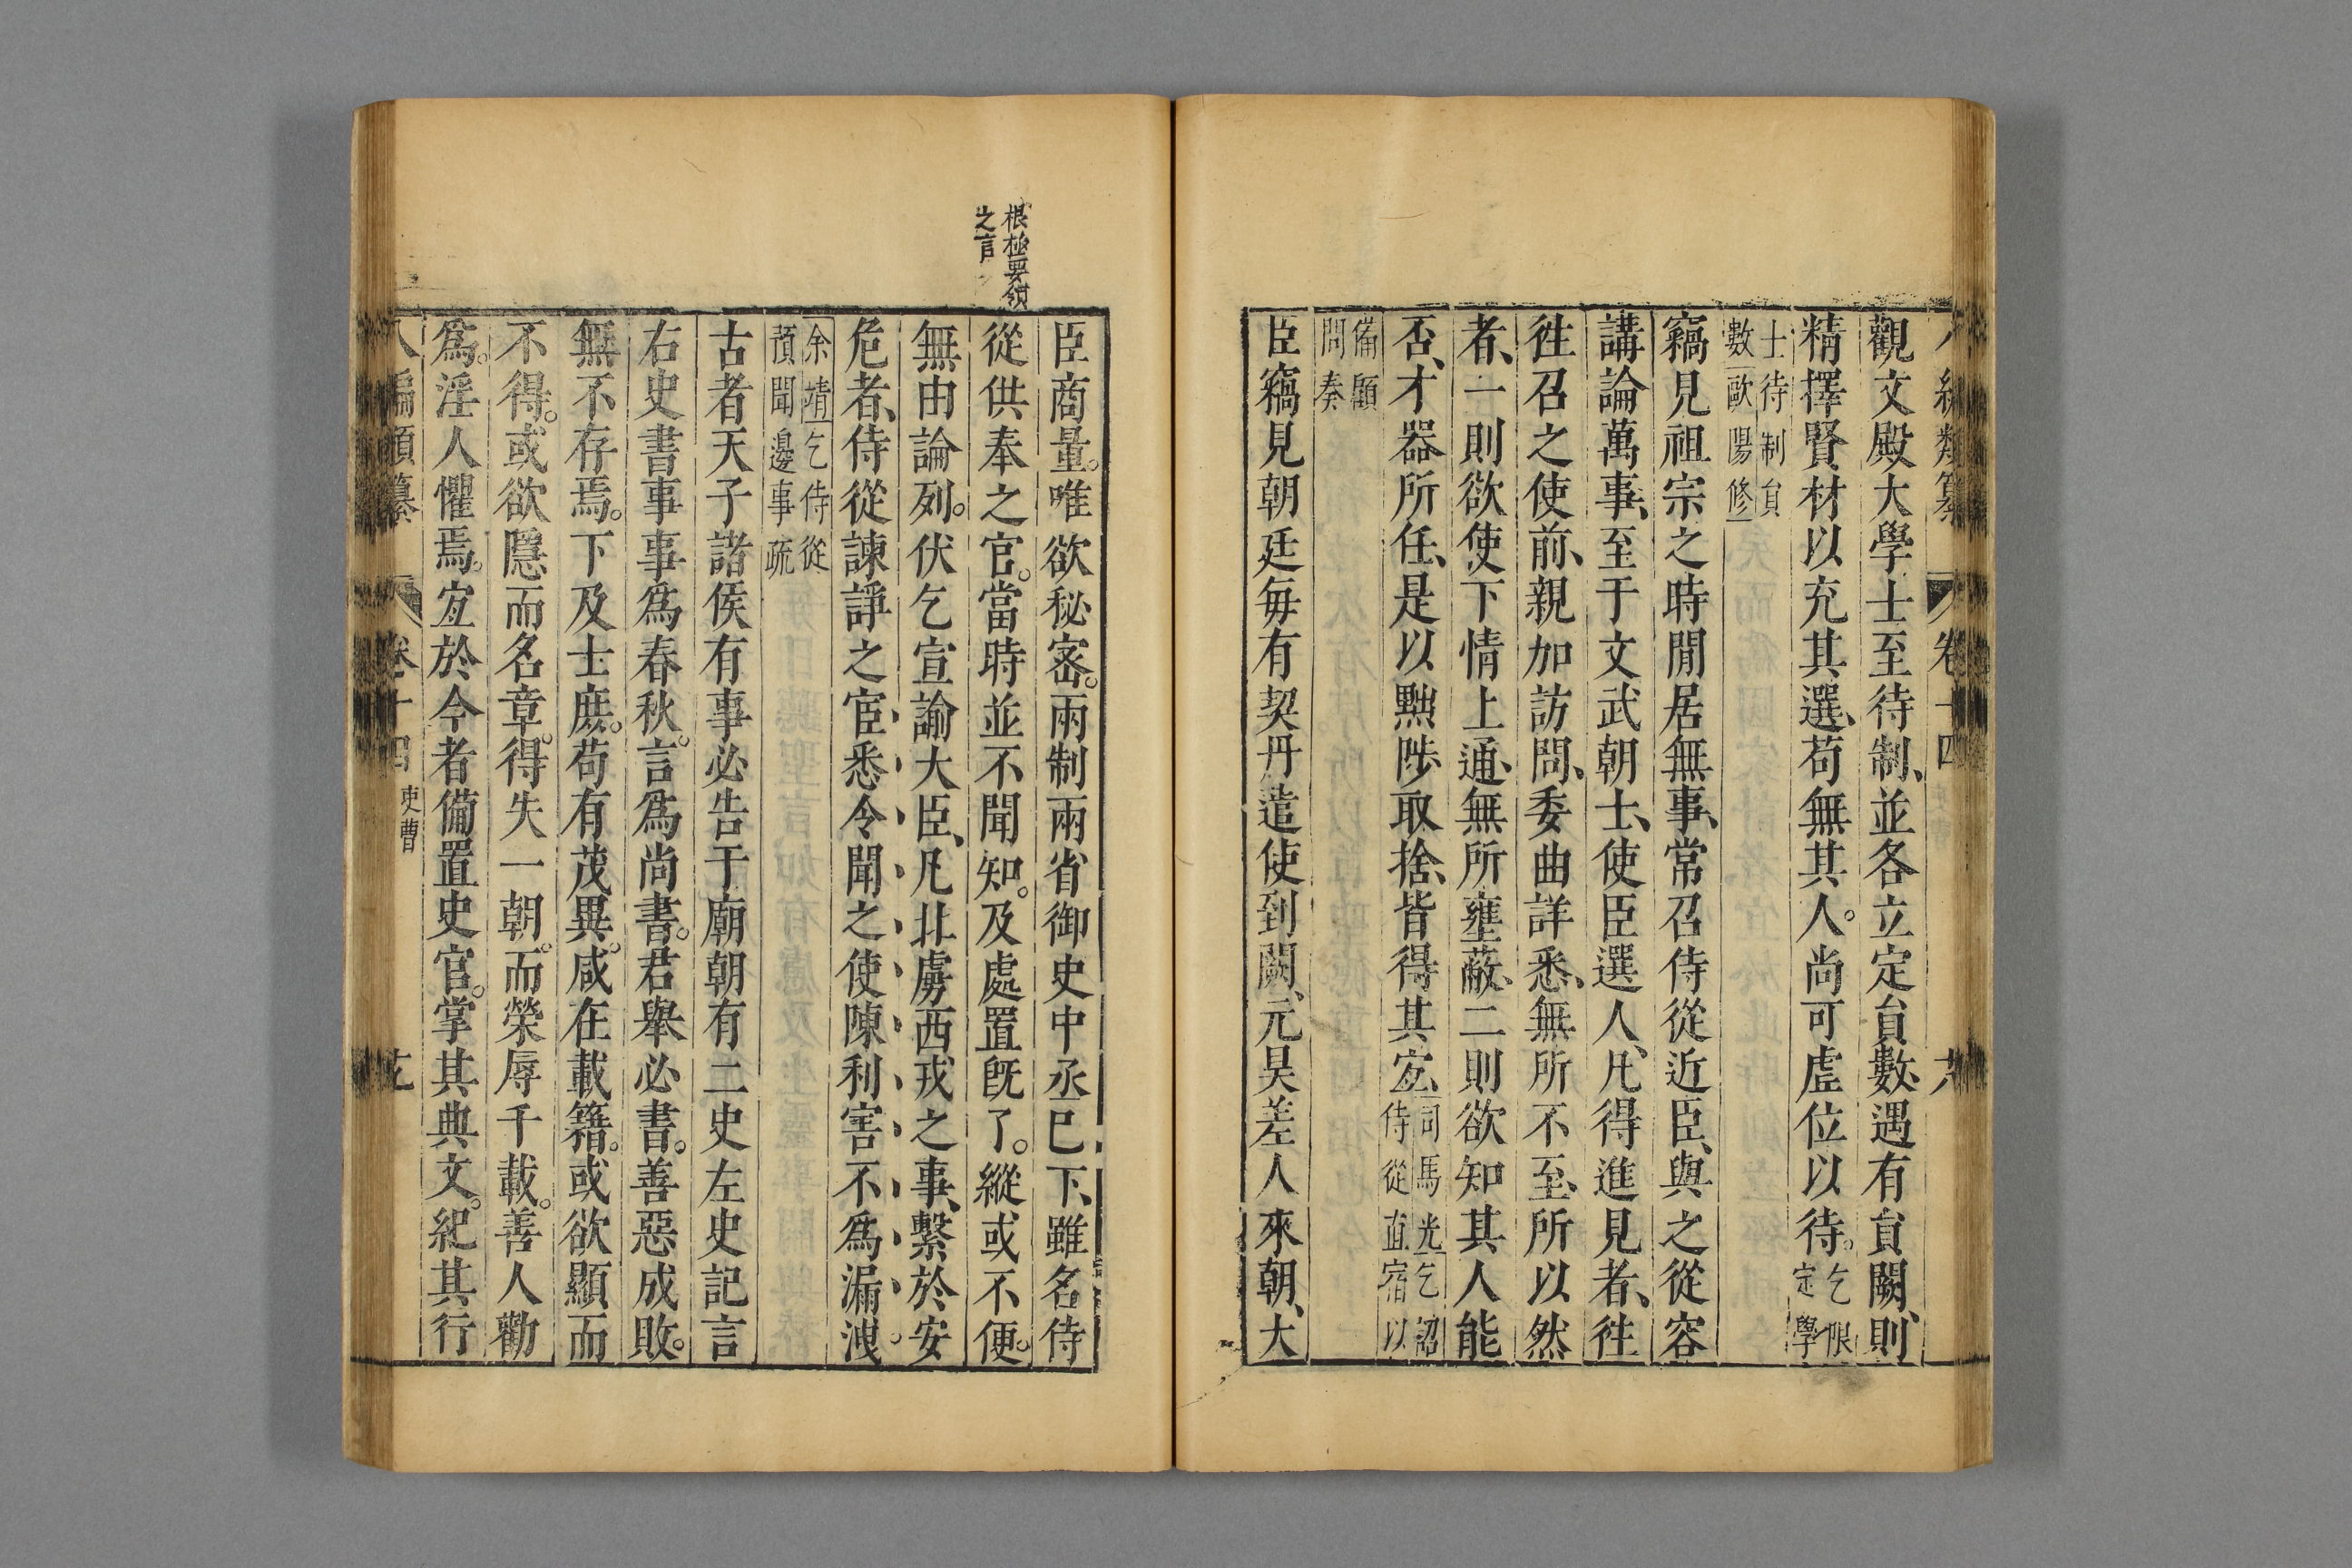 八編類纂 卷十四
觀文殿大學士至待制、並各立定員數、遇有員闕、則
精擇賢材以充其選、苟無其人。尚可虛位以待。乞限定學
士待制員數歐陽修
竊見祖宗之時閒居無事、常召侍從近臣、與之從容
講論萬事、至于文武朝士、使臣選人、凡得進見者、徃
徃召之使前、親加訪問、委曲詳悉、無所不至、所以然
者、一則欲使下情上通、無所壅蔽、二則欲知其人能
否、才器所任、是以黜陟取捨、皆得其宐、司馬光乞詔侍從直宿以
備顧問奏
臣竊見朝廷每有契丹遣使到闕、元昊差人來朝、大
根極要領
之言
臣商量。唯欲秘密。兩制兩省御史中丞已下、雖名侍
從供奉之官。當時並不聞知。及處置旣了。縱或不便。
無由論列。伏乞宣諭大臣、凡北虜西戎之事、繫於安
危者、侍從諫諍之宦、悉令聞之、使陳利害、不爲漏洩。
余靖乞侍從預聞邊事疏
古者天子諸侯有事必告于廟朝有二史左史記言
右史書事事爲春秋。言爲尚書。君舉必書。善惡成敗。
無不存焉。下及士庶。苟有茂異。咸在載籍。或欲顯而
不得。或欲隱而名章。得失一朝。而榮辱千載。善人勸
爲。淫人懼焉。宐於今者備置史官。掌其典文。紀其行
八編類纂 卷十四 吏曹